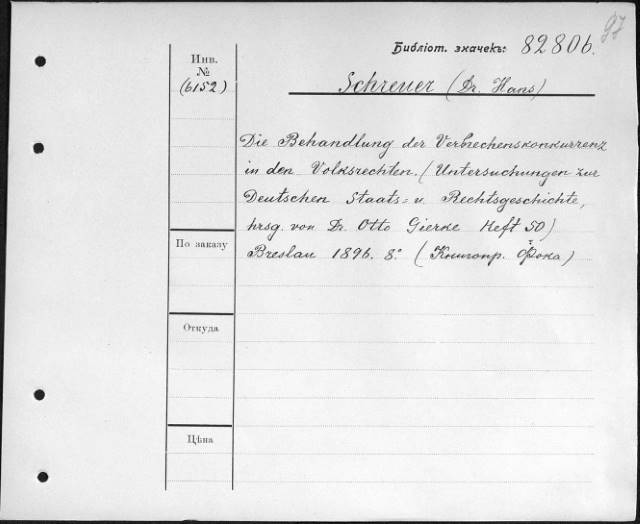 97
Библіот. значекъ: 82806.
Инв.
№
(6152)
Schreuer (Dr. Hans)
Die Behandlung der Verbrechenskonkurrenz
in den Volksrechten. (Untersuchungen zur
Deutschen Staats= u. Rechtsgeschichte,
hrsg. von Dr. Otto Gierke Heft 50)
Breslau 1896. 8.° (Книгопр. Фока)
По заказу
Откуда
Цѣна